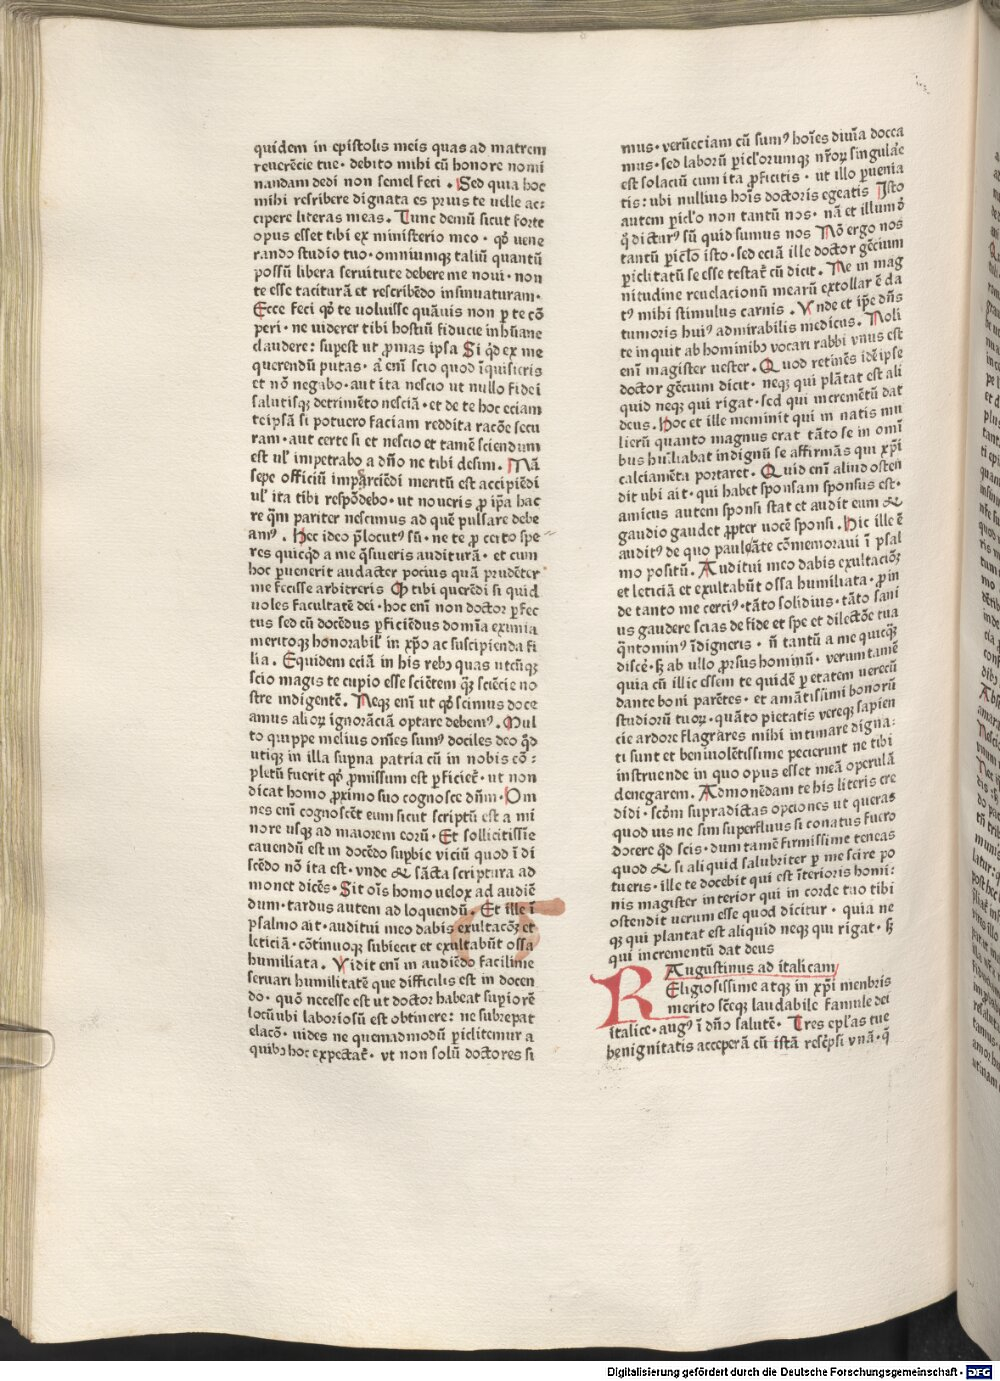 quidem in epistolis meis quas ad matrem
reuerēcie tue· debito mihi cū honore nomi
nandam dedi non semel feci · Sed quia hoc
mihi rescribere dignata es prius te uelle ac:
cipere literas meas. Tunc demū sicut forte
opus esset tibi ex ministerio meo · qđ uene
rando studio tuo· omniumqȝ taliū quantū
possū libera seruitute debere me noui· non
te esse taciturā et rescribēdo insinuaturam·
Ecce feci qđ te uoluisse quāuis non p te cō
peri· ne viderer tibi hostiū fiducie inhūane
claudere: supest ut pmas ipsa Si qđ ex me
querendū putas· a' enī scio quod īquisieris
et nō negabo· aut ita nescio ut nullo fidei
salutisqȝ detrimēto nesciā· et de te hoc eciam
teipsā si potuero faciam reddita racōe secu
ram· aut certe si et nescio et tamē sciendum
est ul' impetrabo a dño ne tibi desim. Nā
sepe officiū impārciēdi meritū est accipiēdi
ul' ita tibi respōdebo· ut noueris p ip̄a hac
re q̄m pariter nescimus ad quē pulsare debe
amꝰ. Hec ideo p̄locutꝰ sū· ne te p certo spe
res quicqđ a me q̄siueris auditurā· et cum
hoc puenerit audacter pocius quā prudēter
me fecisse arbitreris Q tibi querēdi si quid
uoles facultatē dei· hoc enī non doctor pfec
tus sed cū docēdus pficiēdus domīa eximia
meritoqȝ honorabil' in xp̄o ac suscipienda fi
lia. Equidem eciā in his rebꝰ quas utcūqȝ
scio magis te cupio esse sciētem q̄ȝ sciēcie no
stre indigentē. Neqȝ enī ut qđ scimus doce
amus alioꝝ ignorāciā optare debemꝰ. Mul
to quippe melius om̄es sumꝰ dociles deo qđ
utiqȝ in illa supna patria cū in nobis cō:
pletū fuerit qđ pmissum est pficiet̉· ut non
dicat homo pximo suo cognosce dñm· Om
nes enī cognoscēt eum sicut scriptū est a mi
nore usqȝ ad maiorem eorū· Et sollicitissīe
cauendū est in docēdo supbie viciū quod ī di
scēdo nō ita est· vnde & sācta scriptura ad
monet dicēs· Sit oīs homo velox ad audiē
dum· tardus autem ad loquendū· Et ille ī
psalmo ait· auditui meo dabis exultacōȝ et
leticiā· cōtinuoqȝ subiecit et exultabūt ossa
humiliata. Vidit enī in audiēdo facilime
seruari humilitatē que difficilis est in docen
do· quō necesse est ut doctor habeat supiorē
locū ubi laboriosū est obtinere: ne subrepat
elacō· vides ne quemadmodū piclitemur a
quibꝰ hoc expectat̉· vt non solū doctores si
mus· verū eciam cū sumꝰ hoīes diuīa docea
mus· sed laborū pic'lorumqȝ nr̄oꝝ singulāe
est solaciū cum ita pficitis· ut illo puenia
tis: ubi nullius hoīs doctoris egeatis Isto
autem pic'lo non tantū nos· nā et illum đ
q̄ dicturꝰ sū quid sumus nos Nō ergo nos
tantū pic'lo isto· sed eciā ille doctor gēcium
piclitatū se esse testat̉ cū dicit. Ne in mag
nitudine reuelacionū mearū extollar ē da
tꝰ mihi stimulus carnis. Vnde et ip̄e dn̄s
tumoris huiꝰ admirabilis medicus. Noli
te inquit ab hominibꝰ vocari rabbi vnus est
enī magister uester. Quod retinēs idē ipse
doctor gēcium dicit· neqȝ qui plātat est ali
quid neqȝ qui rigat· sed qui incremētū dat
deus. Hoc et ille meminit qui in natis mu
lierū quanto magnus erat tāto se in omī
bus hūiliabat indignū se affirmās qui xp̄i
calciamēta portaret. Quid enī aliud osten
dit ubi ait· qui habet sponsam sponsus est·
amicus autem sponsi stat et audit eum &
gaudio gaudet ppter uocē sponsi. Hic ille ē
auditꝰ de quo pauloāte cōmemoraui ī psal
mo positū. Auditui meo dabis exultaciōȝ
et leticiā et exultabūt ossa humiliata· pin
de tanto me cerciꝰ· tāto solidius· tāto sani
us gaudere scias de fide et spe et dilectōe tua
q̄ntominꝰ īdigneris· n̄ tantū a me quicqȝ
discē· sȝ ab ullo prsus hominū· verumtamē
quia cū illic essem te quidē p etatem uerecū
dante boni parētes· et amātissimi bonorū
studiorū tuoꝝ· quāto pietatis vereqȝ sapien
cie ardore flagrāres mihi intimare digna:
ti sunt et beniuolētissime pecierunt ne tibi
instruende in quo opus esset meā operulā
denegarem. Admonēdam te his literis cre
didi· scđm supradictas opciones ut queras
quod uis ne sim superfluus si conatus fuero
docere qđ scis· dum tamē firmissime teneas
quod & si aliquid salubriter p me scire po
tueris· ille te docebit qui est īterioris homi:
nis magister interior qui in corde tuo tibi
ostendit uerum esse quod dicitur· quia ne
qȝ qui plantat est aliquid neqȝ qui rigat· sȝ
qui incrementū dat deus
Augustinus ad italicam
REligiosissime atqȝ in xp̄i menbris
merito scēqȝ laudabile famule dei
italice· augꝰ ī dño salutē· Tres ep'las tue
benignitatis acceperā cū istā resc̄psi vnā· q̄
Digitalisierung gefördert durch die Deutsche Forschungsgemeinschaft - DFG